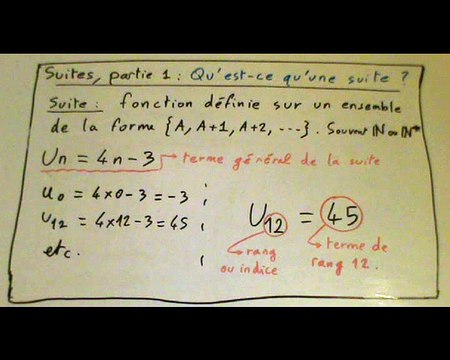 Suites, partie 1 : Qu'est-ce qu'une suite ?
Suite : fonction définie sur un ensemble
de la forme {A, A+1, A+2, ---}. Souvent ℕ ou ℕ*
Un = 4n-3 → terme général de la suite
U0 = 4×0-3 = -3 ;
U12 = 4×12-3 = 45 ;
etc. ;
U12 = 45
rang
ou indice
terme de
rang 12.